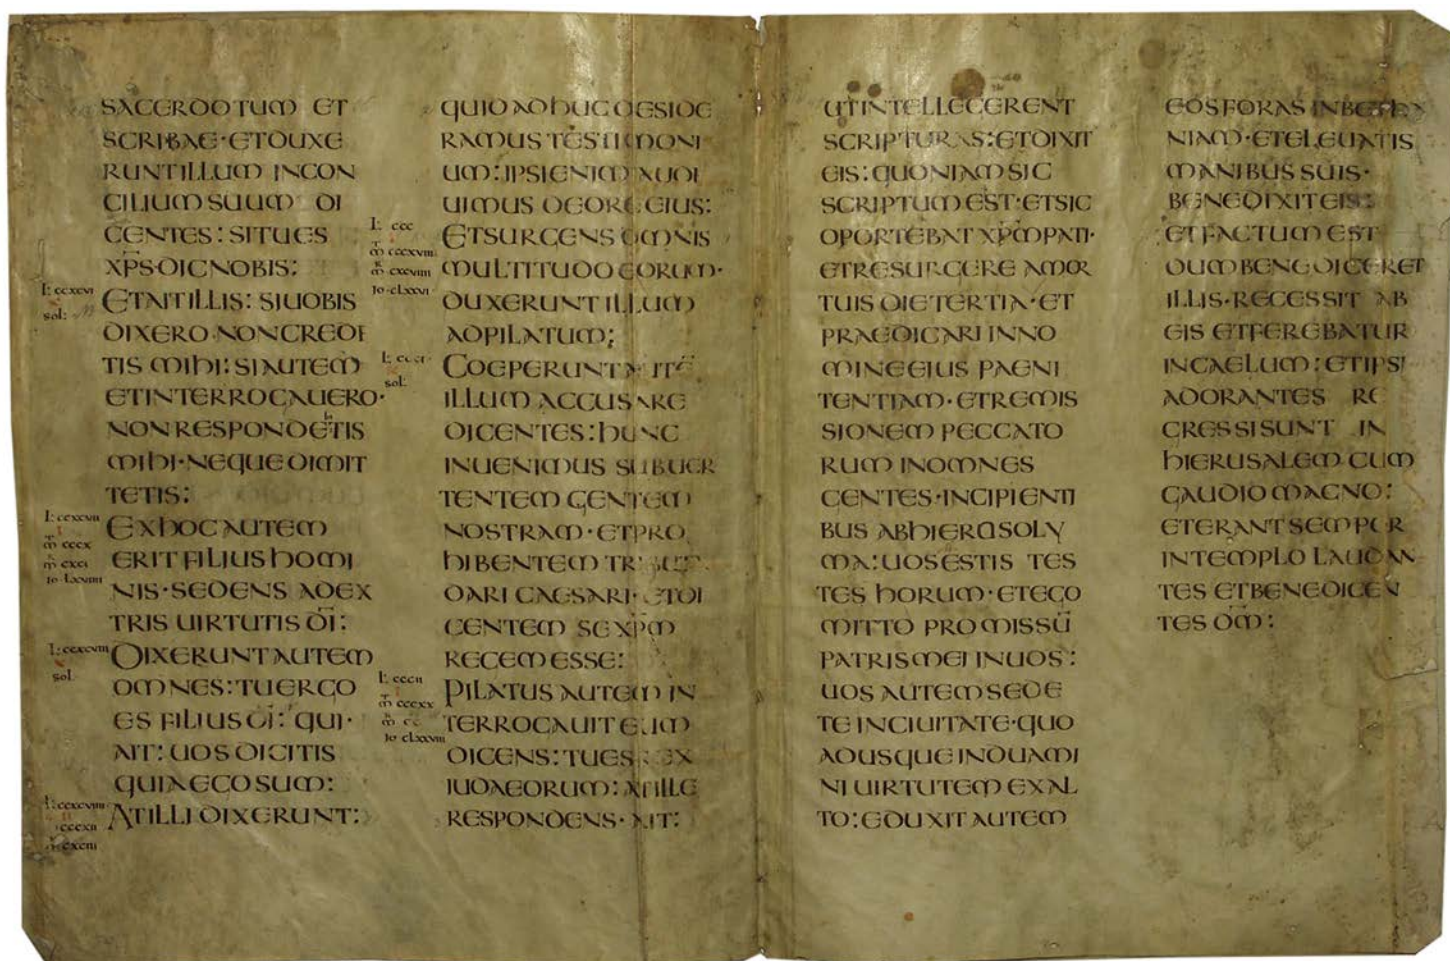 SACERDOTUM ET
SCRIBAE·ETDUXE
RUNTILLUM INCON
CILIUM SUUM DI
CENTES:SITUES
XP̄S·DICNOBIS:
l: ccxcvi
sol:
ETAITILLIS: SIUOBIS
DIXERO·NONCREDI
TIS MIHI:SIAUTEM
ETINTERROGAUERO·
NON RESPONDETIS
MIHI·NEQUEDIMIT
TETIS:
l: ccxcvii
m cccx
m cxci
io lxxviiii
EXHOCAUTEM
ERITFILIUSHOMI
NIS·SEDENS ADEX
TRIS UIRTUTIS D̄I:
l: ccxcviii
sol
DIXERUNTAUTEM
OMNES:TUERGO
ES FILIUSD̄I: QUI·
AIT: UOSDICITIS
QUIAEGOSUM:
l: ccxcviiii
cccxii
m cxciii
ATILLIDIXERUNT:
QUIDADHUCDESIDE
RAMUSTESTIMONI
UM:IPSIENIMAUDI
UIMUS DEOREEIUS:
l: ccc
m cccxviii
m cxcviiii
io clxxvi
ETSURGENS OMNIS
MULTITUDO EORUM·
DUXERUNTILLUM
ADPILATUM;
l: ccci
sol:
COEPERUNTAUTĒ
ILLUM ACCUSARE
DICENTES:HUNC
INUENIMUS SUBUER
TENTEM GENTEM
NOSTRAM·ETPRO
HIBENTEM TR
DARI CAESARI·ETDI
CENTEM SEXP̄M
REGEMESSE:
l: cccii
m cccxx
m cc
io clxxviii
PILATUS AUTEM IN
TERROGAUITEUM
DICENS:TUES REX
IUDAEORUM:ATILLE
RESPONDENS·AIT:
UTINTELLEGERENT
SCRIPTURAS:ETDIXIT
EIS:QUONIAMSIC
SCRIPTUMEST·ETSIC
OPORTEBAT XP̄MPATI·
ETRESURGERE AMOR
TUIS DIETERTIA·ET
PRAEDICARI INNO
MINEEIUS PAENI
TENTIAM·ETREMIS
SIONEM PECCATO
RUM INOMNES
GENTES·INCIPIENTI
BUS ABHIEROSOLY
MA:UOSESTIS TES
TES HORUM·ETEGO
MITTO PROMISSŪ
PATRISMEI INUOS:
UOS AUTEMSEDE
TE INCIUITATE·QUO
ADUSQUEINDUAMI
NI UIRTUTEM EXAL
TO:EDUXITAUTEM
EOSFORAS INBETHA
NIAM·ETELEUATIS
MANIBUS SUIS·
BENEDIXITEIS:
ETFACTUMEST
DUMBENEDICERET
ILLIS·RECESSIT AB
EIS ETFEREBATUR
INCAELUM:ETIPSI
ADORANTES RE
GRESSISUNT IN
HIERUSALEM CUM
GAUDIOMAGNO:
ETERANTSEMPER
INTEMPLO LAUDAN
TES ETBENEDICEN
TES D̄M: